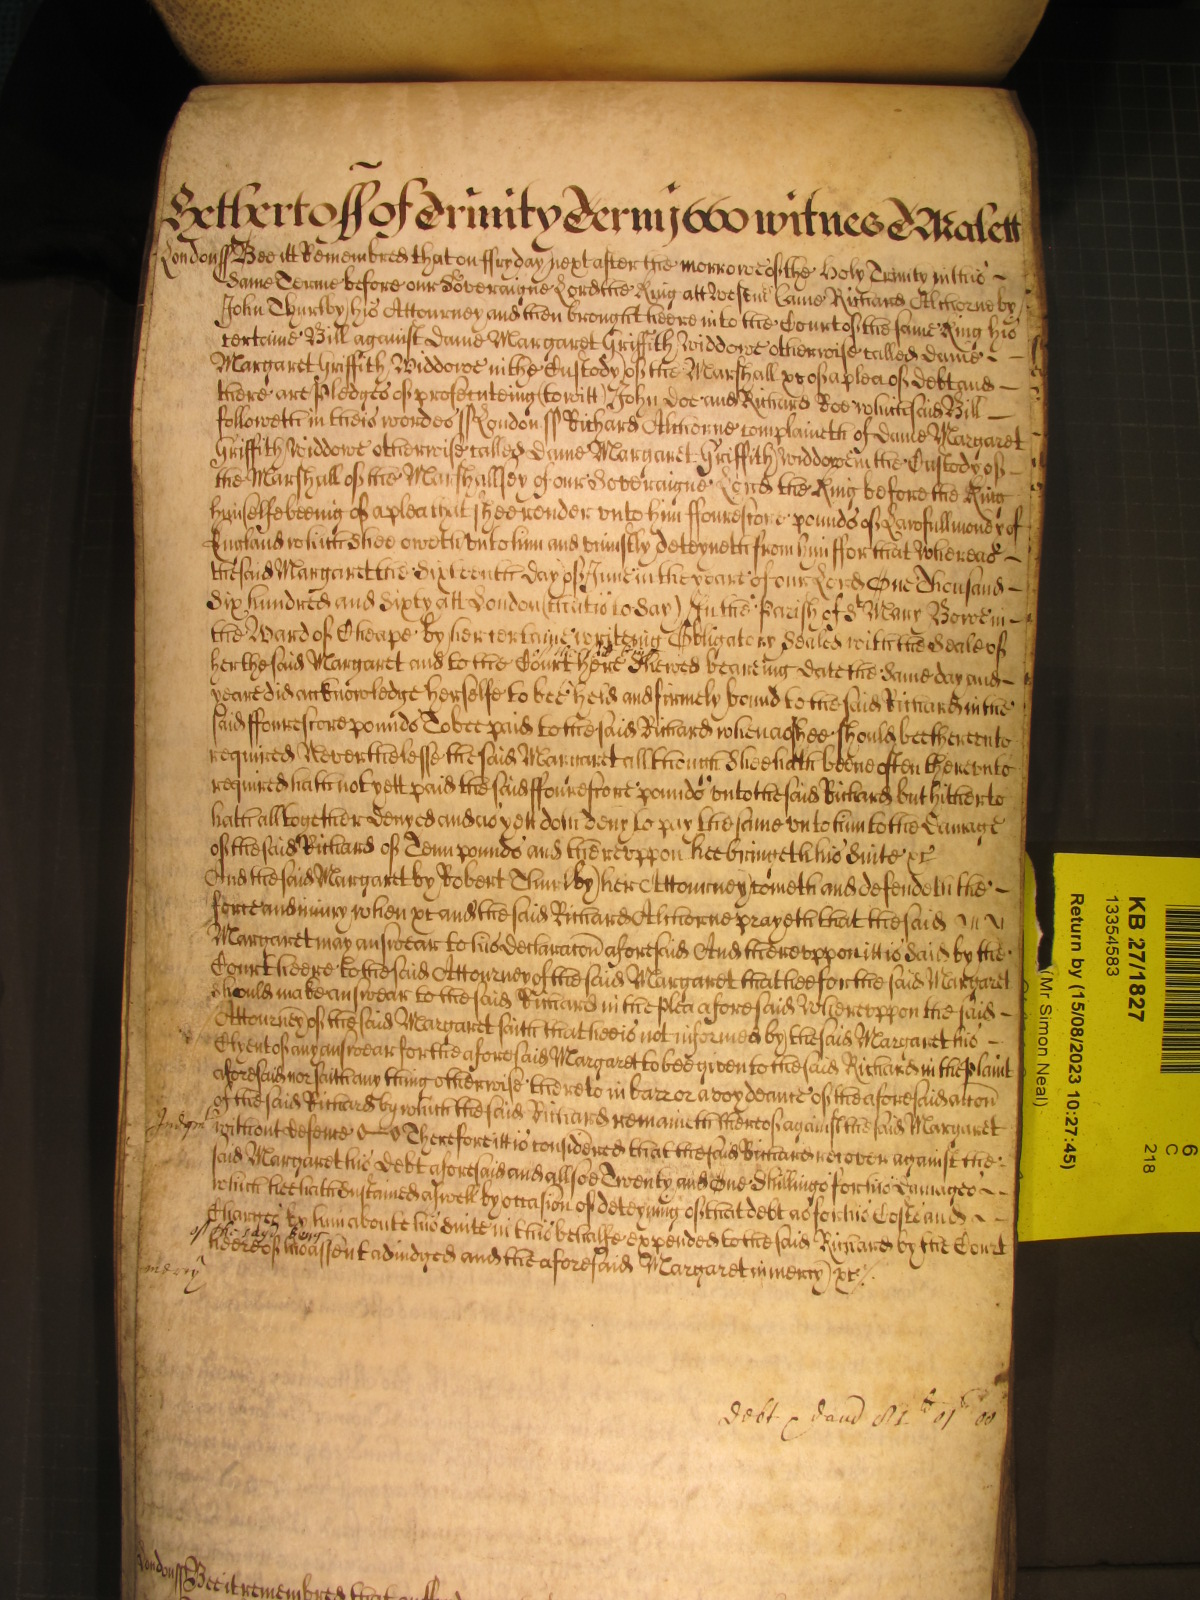 Hetherto ss of Trinity Term 1660 witnes T Malett
London ss Bee itt Remembred that on ffryday next after the morrowe of the Holy Trinity in this
same Terme before our Soveraigne Lord the King att Westm̃ Came Richard Althorne by
John Thurlby his Attourney and then brought heere into the Court of the same King his
certaine Bill against Dame Margaret Griffith Widdowe otherwise called Dame
Margaret Griffith Widdowe in the Custody of the Marshall &c of a plea of debt and
there are Pledges of prosecuteing (to witt) John Doe and Richard Roe which said Bill
followeth in theis wordes ss London ss Richard Althorne complaineth of Dame Margaret
Griffith Widdowe otherwise called Dame Margaret Griffith Widdowe in the Custody of
the Marshall of the Marshallsey of our Soveraigne Lord the King before the King
himselfe beeing of a plea that shee render unto him ffourescore pounds of Lawfull money of
England which shee oweth unto him and uniustly deteyneth from him ffor that Whereas
the said Margaret the Sixteenth day of June in the yeare of our Lord One Thousand
Six hundred and Sixty att London (that is to say) In the Parish of St Mary Bowe in
the Ward of Cheape by her certaine writeing Obligatory Sealed with the Seale of
her the said Margaret and to the Court here Shewed beareing date the same day and
yeare did acknowledge herselfe to bee held and firmely bound to the said Richard in the
said ffourescore pounds To bee paid to the said Richard when as shee should bee thereunto
required Neverthelesse the said Margaret allthough Shee hath beene often thereunto
required hath not yett paid the said ffourescore pounds unto the said Richard but hitherto
hath alltogether denyed and as yett doth deny to pay the same unto him to the damage
of the said Richard of Tenn pounds and thereuppon hee bringeth his Suite &c
And the said Margaret by Robert Thurlby her Attourney cometh and defendeth the
force and iniury when &c and the said Richard Althorne prayeth that the said
Margaret may answear to his declaratōn aforesaid And thereuppon itt is said by the
Court heere to the said Attourney of the said Margaret that hee for the said Margaret
should make answear to the said Richard in the Plea aforesaid Whereuppon the said
Attourney of the said Margaret saith that hee is not informed by the said Margaret his
Clyent of any answear for the aforesaid Margaret to bee given to the said Richard in the Plaint
aforesaid nor saith any thing otherwise thereto in barr or avoydeance of the aforesaid actōn
of the said Richard by which the said Richard remaineth thereof against the said Margaret
Judgmt
without defence Therefore itt is considered that the said Richard recover against the
said Margaret his Debt aforesaid and allsoe Twenty and One Shillings for his damages
which hee hath sustained aswell by occasion of deteyning of that debt as for his Costs and
Charges by him aboute his Suite in this behalfe expended to the said Richard by the Court
heere of his assent adiudged and the aforesaid Margaret in mercy &c
mercy
debt & dam̃ 81 li 01 s 00
London ss Bee it remembred that on
KB 27/1827
13354583
Return by (15/08/2023 10:27:45)
(Mr Simon Neal)
6
C
218